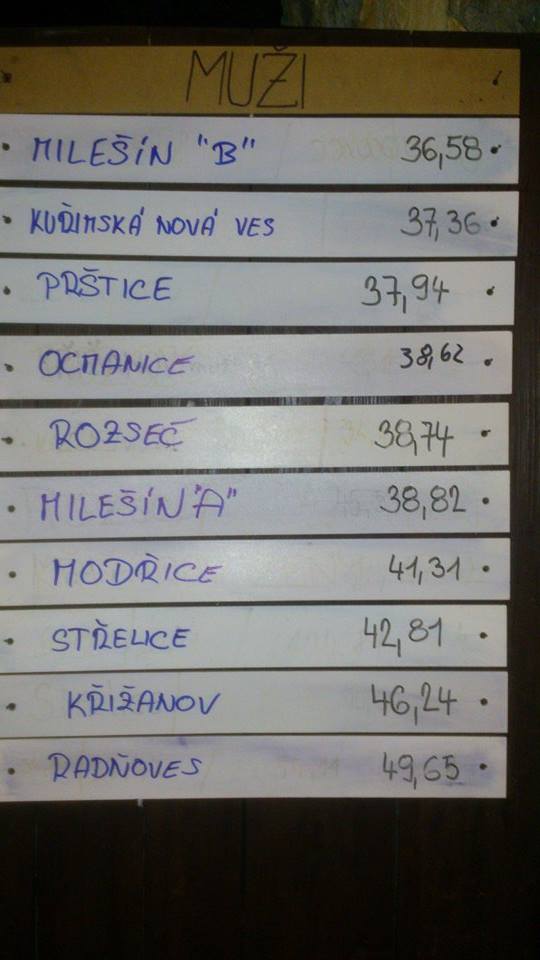 MUŽI
MILEŠÍN "B" 36,58
KUŘIMSKÁ NOVÁ VES 37,36
PRŠTICE 37,94
OCMANICE 38,62
ROZSEČ 38,74
MILEŠÍN "A" 38,82
MODŘICE 41,31
STŘELICE 42,81
KŘIŽANOV 46,24
RADŇOVES 49,65